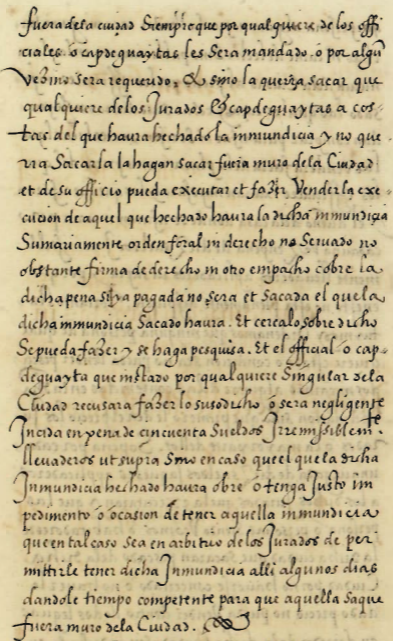 fuera dela ciudad Siempre que por qualquiere de los offi
ciales o capdeguaytas les Sera mandado. o por algun
Vezino Sera requerido, & sino la querra sacar que
qualquiere delos Jurados & capdeguaytas a cos-
tas del que haura hechado la inmundicia y no que
rra Sacarla la hagan sacar fuera muro dela Ciudad
et de su officio pueda executar et fazer Vender la exe-
cucion de aquel que hechado haura la dicha inmundicia
Sumariamente orden foral ni derecho no Seruado no
obstante firma de derecho ni otro empacho cobre la
dicha pena si ya pagada no sera et Sacada el que la
dicha inmundicia Sacado haura. Et cerca lo sobre dicho
Se pueda fazer y se haga pesquisa. Et el official o cap-
deguayta que instado por qualquiere Singular dela
Ciudad recusara fazer lo susodicho o sera negligente
Incida en pena de cincuenta Sueldos Irremissiblemte.
lleuaderos ut supra Sino en caso que el que la dicha
Inmundicia hechado haura obre o tenga Justo im
pedimento o ocasion de tener aquella inmundicia
que en tal caso sea en arbitrio delos Jurados de per
mittirle tener dicha Inmundicia alli algunos dias
dandole tiempo competente para que aquella saque
fuera muro dela Ciudad.